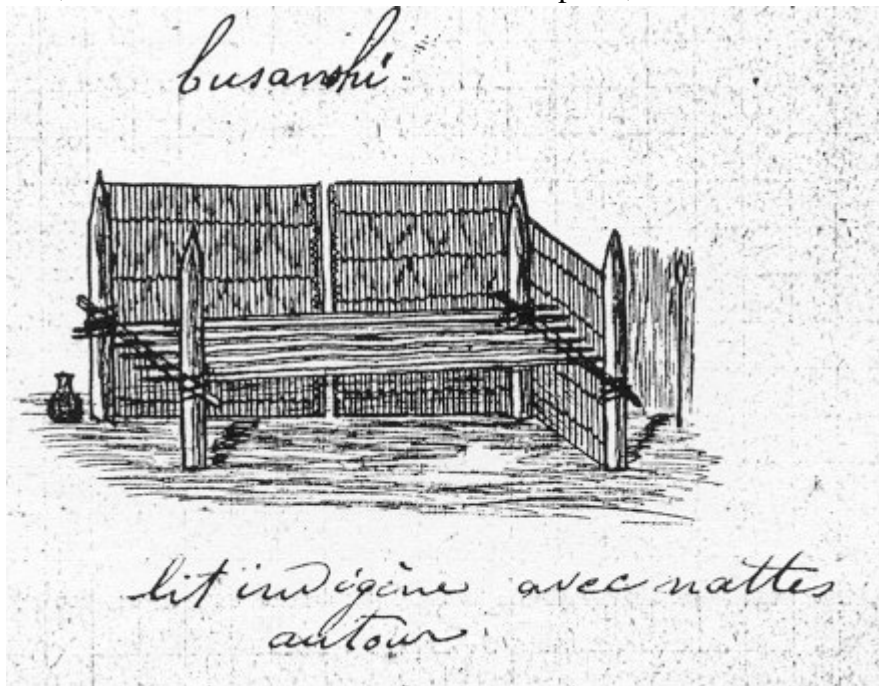 busanshi
lit indigène avec nattes
autour